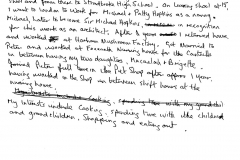 school and from then to Stradbroke High School, on leaving school at 15,
I went to London to work for Michael & Patty Hopkins as a nanny.
Michael later to become Sir Michael Hopkins, in recognition
for his work as an architect. After 2 years I returned home
and worked at Horham Mushroom Factory. Got Married to
Peter and worked at Farmouth Nursing home for the Councils
in between having my two daughters, Macaulah & Brigette
joined Peter full time in the Pet Shop after approx 1 year
having worked in the Shop in between shift hours at the
nursing home.
My interests include Cooking, spending time with the children
and grandchildren, Shopping and eating out.